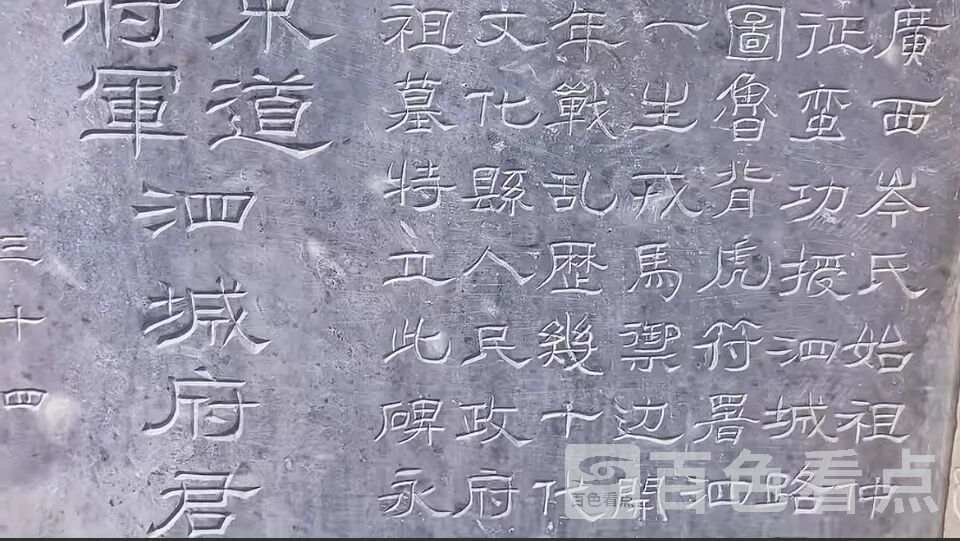 廣西岑氏始祖中
征蛮功授泗城路
圖魯背虎符署泗
一生戎馬禦边開
年戰乱歷幾十代
文化縣人民政府
祖墓特立此碑永
東道
将軍
泗城府君
三十四
百色看点
百色看点